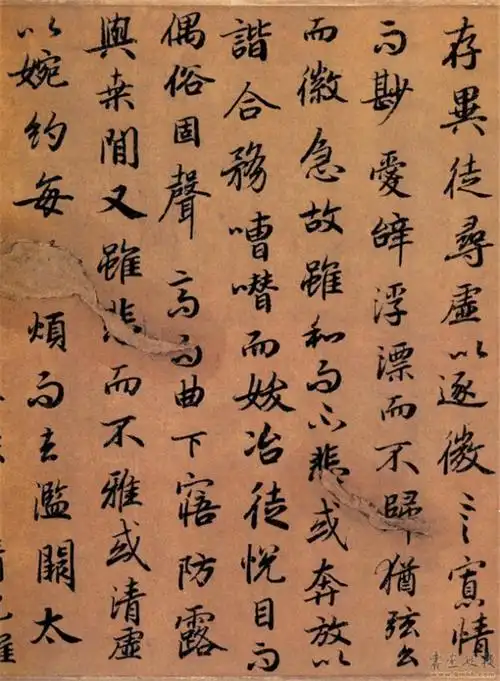 存異徒尋虛以逐微言寡情
而尠愛辭浮漂而不歸猶弦么
而徽急故雖和而不悲或奔放以
諧合務嘈囋而妖冶徒悅目而
偶俗固聲高而曲下寤防露
與桒間又雖悲而不雅或清虛
以婉約每煩而去濫闕太